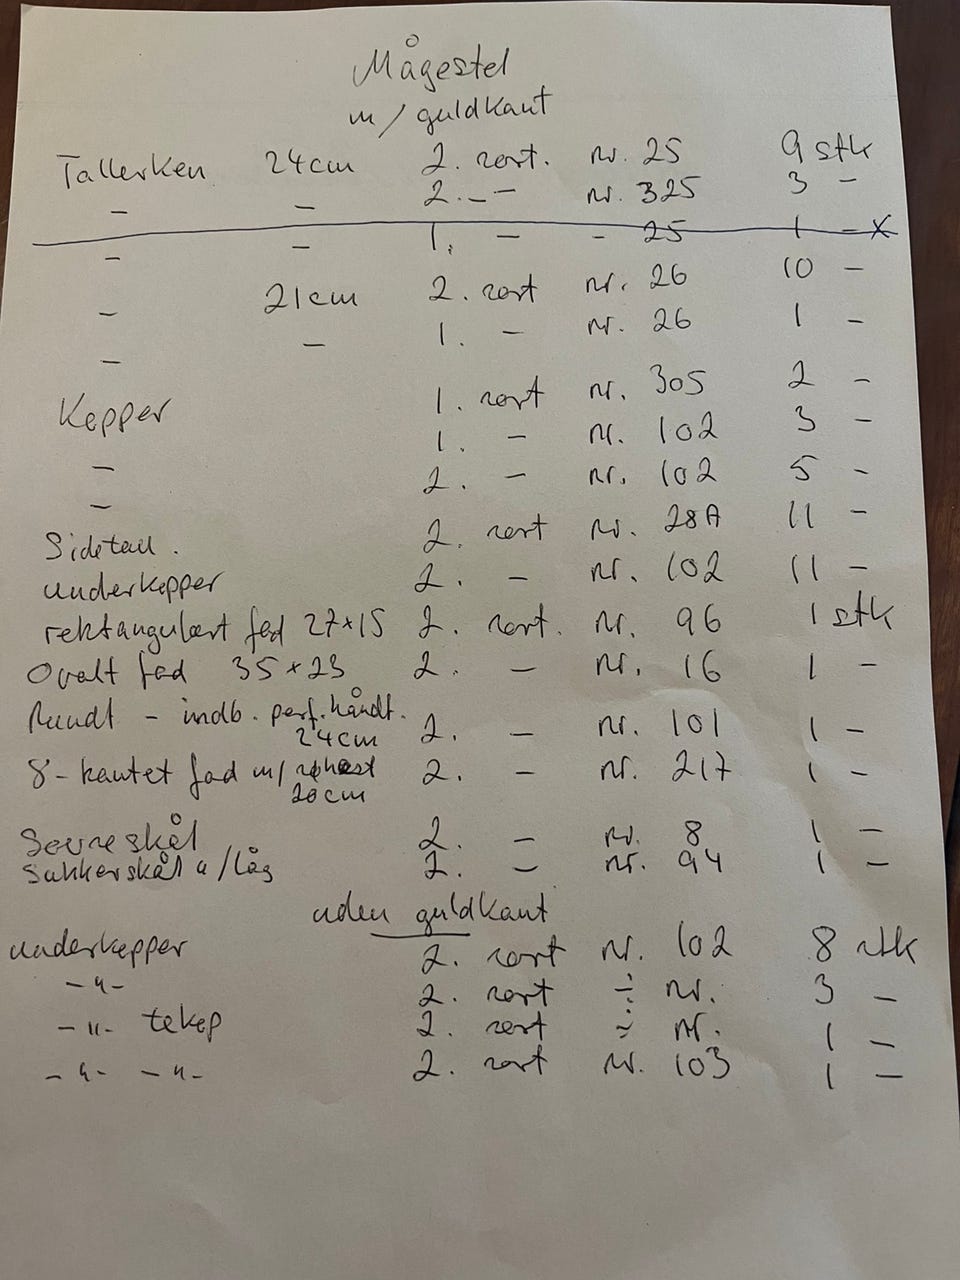 Mågestel
m/ guldkant
Tallerken 24cm 2. sort. nr. 25 9 stk
- - 2. - - nr. 325 3 -
- - 1. - - 25 1 - x
- 21cm 2. sort nr. 26 10 -
- - 1. - nr. 26 1 -
Kopper 1. sort nr. 305 2 -
- 1. - nr. 102 3 -
- 2. - nr. 102 5 -
Sidetall. 2. sort nr. 28A 11 -
underkopper 2. - nr. 102 11 -
rektangulært fad 27x15 2. sort. nr. 96 1 stk
Ovalt fad 35x23 2. - nr. 16 1 -
Rundt - indb. perf. håndt.
24cm 2. - nr. 101 1 -
8-kantet fad m/ 2. - nr. 217 1 -
20cm
Sovseskål 2. - nr. 8 1 -
Sukkerskål u/låg 2. - nr. 94 1 -
uden guldkant
underkopper 2. sort nr. 102 8 stk
-"- 2. sort ÷ nr. 3 -
-"- tekop 2. sort ÷ nr. 1 -
-"- -"- 2. sort nr. 103 1 -